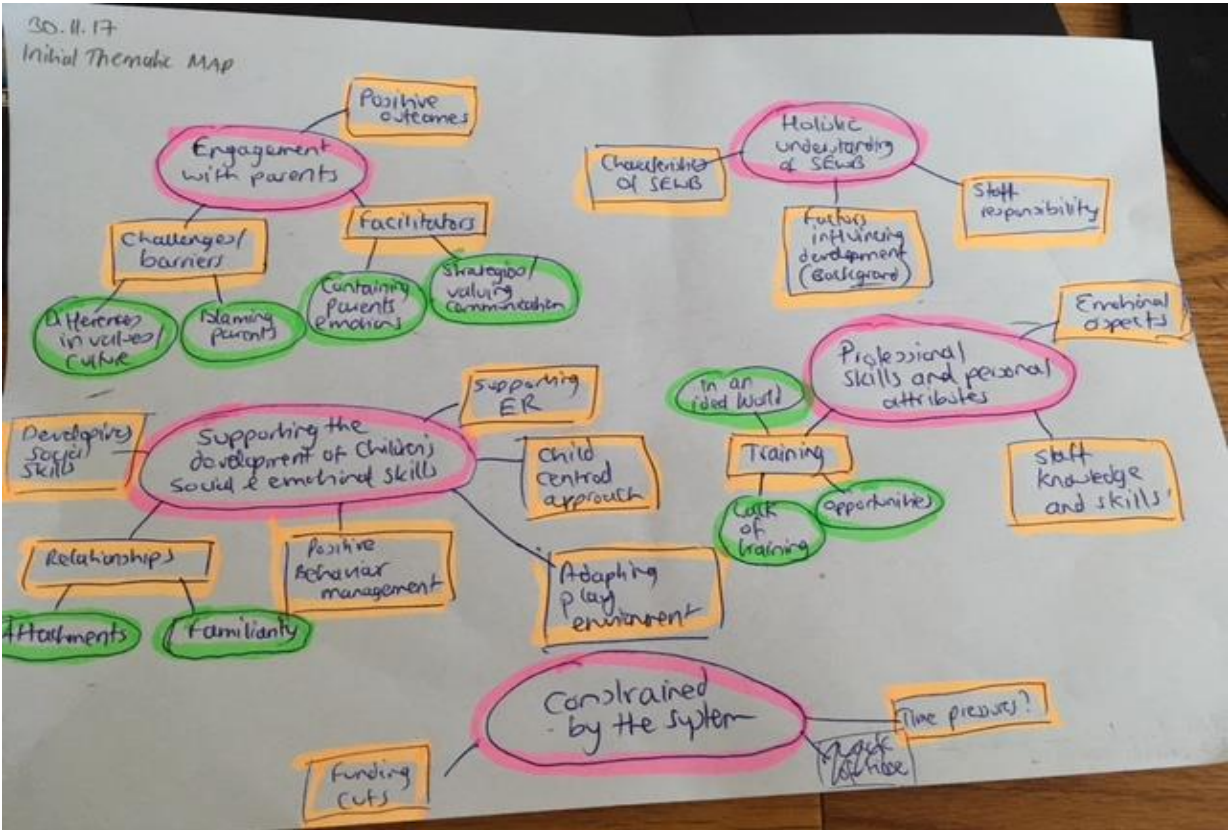 30.11.17
Initial Thematic MAP
Positive
outcomes
Engagement
with parents
Challenges/
barriers
Facilitators
Differences
in values/
culture
Blaming
parents
Containing
parents
emotions
Strategies/
valuing
communication
Holistic
understanding
of SEWB
Characteristics
of SEWB
Factors
influencing
development
(Background)
Staff
responsibility
Emotional
aspects
Professional
skills and personal
attributes
in an
ideal world
Training
Lack
of
training
opportunities
staff
knowledge
and skills
Supporting
ER
Developing
social
skills
Supporting the
development of children's
social & emotional skills
Child
centred
approach
Relationships
Attachments
Familiarity
Positive
Behavior
management
Adapting
play
environment
Constrained
by the system
Time pressures?
Funding
cuts